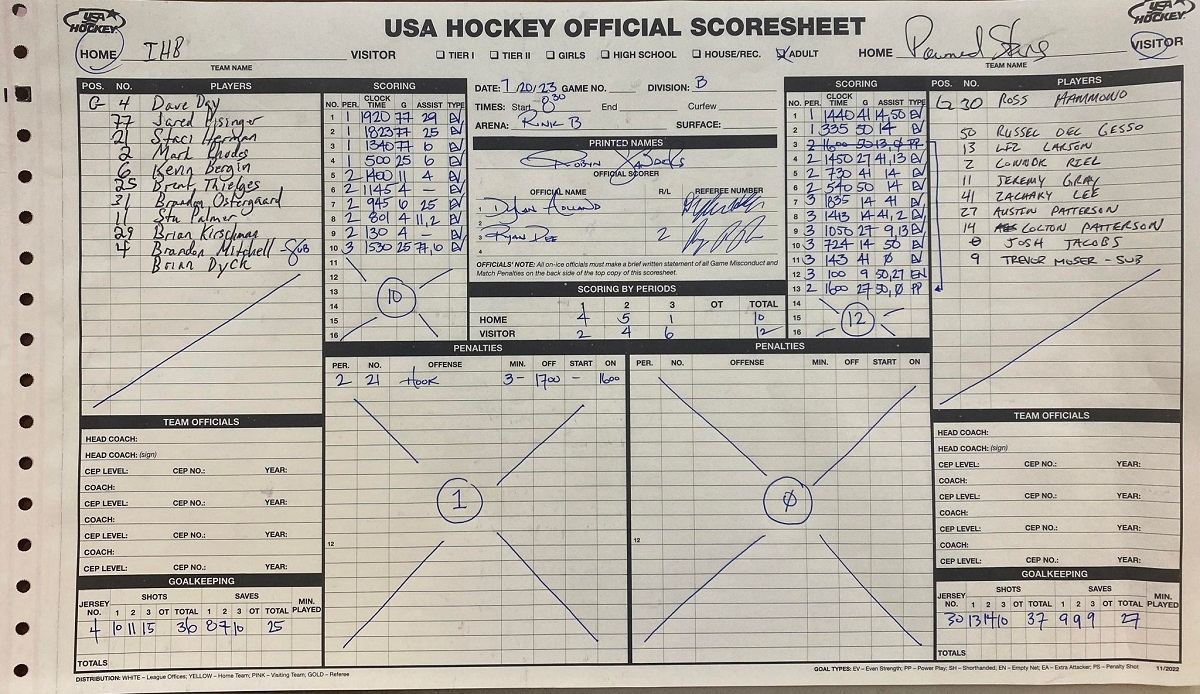 USA HOCKEY
USA HOCKEY OFFICIAL SCORESHEET
USA HOCKEY
HOME IHB VISITOR ☐ TIER I ☐ TIER II ☐ GIRLS ☐ HIGH SCHOOL ☐ HOUSE/REC. ☑ ADULT HOME Pawned Stars VISITOR
TEAM NAME
TEAM NAME
POS. NO. PLAYERS
G 4 Dave Day
77 Jared
21 Staci Herman
2 Mark Rhodes
6 Kevin Bergin
25 Brent Thielges
31 Brandon Ostergaard
11 Stu Palmer
29 Brian Kirschman
4 Brandon Mitchell SUB
Brian Dyck
SCORING
NO. PER. CLOCK TIME G ASSIST TYPE
1 1 1920 77 29 EV
2 1 1823 77 25 EV
3 1 1340 77 6 EV
4 1 500 25 6 EV
5 2 1400 11 4 EV
6 2 1145 4 — EV
7 2 945 6 25 EV
8 2 801 4 11,2 EV
9 2 130 4 — EV
10 3 1530 25 77,10 EV
11
12
13
14
15
16
10
DATE: 7/20/23 GAME NO. DIVISION: B
TIMES: Start 8:30 End Curfew
ARENA: RINK B SURFACE:
PRINTED NAMES
OFFICIAL SCORER
OFFICIAL NAME R/L REFEREE NUMBER
1 Dylan Holland
2
3 Ryan Dee 2
4
OFFICIALS' NOTE: All on-ice officials must make a brief written statement of all Game Misconduct and
Match Penalties on the back side of the top copy of this scoresheet.
SCORING BY PERIODS
1 2 3 OT TOTAL
HOME 4 5 1 10
VISITOR 2 4 6 12
SCORING
NO. PER. CLOCK TIME G ASSIST TYPE
1 1 1440 41 14,50 EV
2 1 335 50 14 EV
3 2 1600 50 13,0 PP
4 2 1450 27 41,13 EV
5 2 730 41 14 EV
6 2 540 50 14 EV
7 3 1835 14 41 EV
8 3 1413 14 41,2 EV
9 3 1050 27 9,13 EV
10 3 724 14 50 EV
11 3 143 41 0 EV
12 3 100 9 50,27 EN
13 2 1600 27 50,0 PP
14
15
16
12
POS. NO. PLAYERS
G 30 ROSS HAMMOND
50 RUSSEL DEL GESSO
13 LIZ LARSON
2 CONNOR RIEL
11 JEREMY GRAY
41 ZACHARY LEE
27 AUSTIN PATTERSON
14 COLTON PATTERSON
0 JOSH JACOBS
9 TREVOR MOSER - SUB
PENALTIES
PER. NO. OFFENSE MIN. OFF START ON
2 21 HOOK 3- 1700 - 1600
1
12
PENALTIES
PER. NO. OFFENSE MIN. OFF START ON
0
12
TEAM OFFICIALS
HEAD COACH:
HEAD COACH: (sign)
CEP LEVEL: CEP NO.: YEAR:
COACH:
CEP LEVEL: CEP NO.: YEAR:
COACH:
CEP LEVEL: CEP NO.: YEAR:
COACH:
CEP LEVEL: CEP NO.: YEAR:
GOALKEEPING
JERSEY NO. SHOTS SAVES MIN. PLAYED
1 2 3 OT TOTAL 1 2 3 OT TOTAL
4 10 11 15 36 8 7 10 25
TOTALS
TEAM OFFICIALS
HEAD COACH:
HEAD COACH: (sign)
CEP LEVEL: CEP NO.: YEAR:
COACH:
CEP LEVEL: CEP NO.: YEAR:
COACH:
CEP LEVEL: CEP NO.: YEAR:
COACH:
CEP LEVEL: CEP NO.: YEAR:
GOALKEEPING
JERSEY NO. SHOTS SAVES MIN. PLAYED
1 2 3 OT TOTAL 1 2 3 OT TOTAL
30 13 14 10 37 9 9 9 27
TOTALS
DISTRIBUTION: WHITE – League Offices; YELLOW – Home Team; PINK – Visiting Team; GOLD – Referee
GOAL TYPES: EV – Even Strength; PP – Power Play; SH – Shorthanded; EN – Empty Net; EA – Extra Attacker; PS – Penalty Shot 11/2022